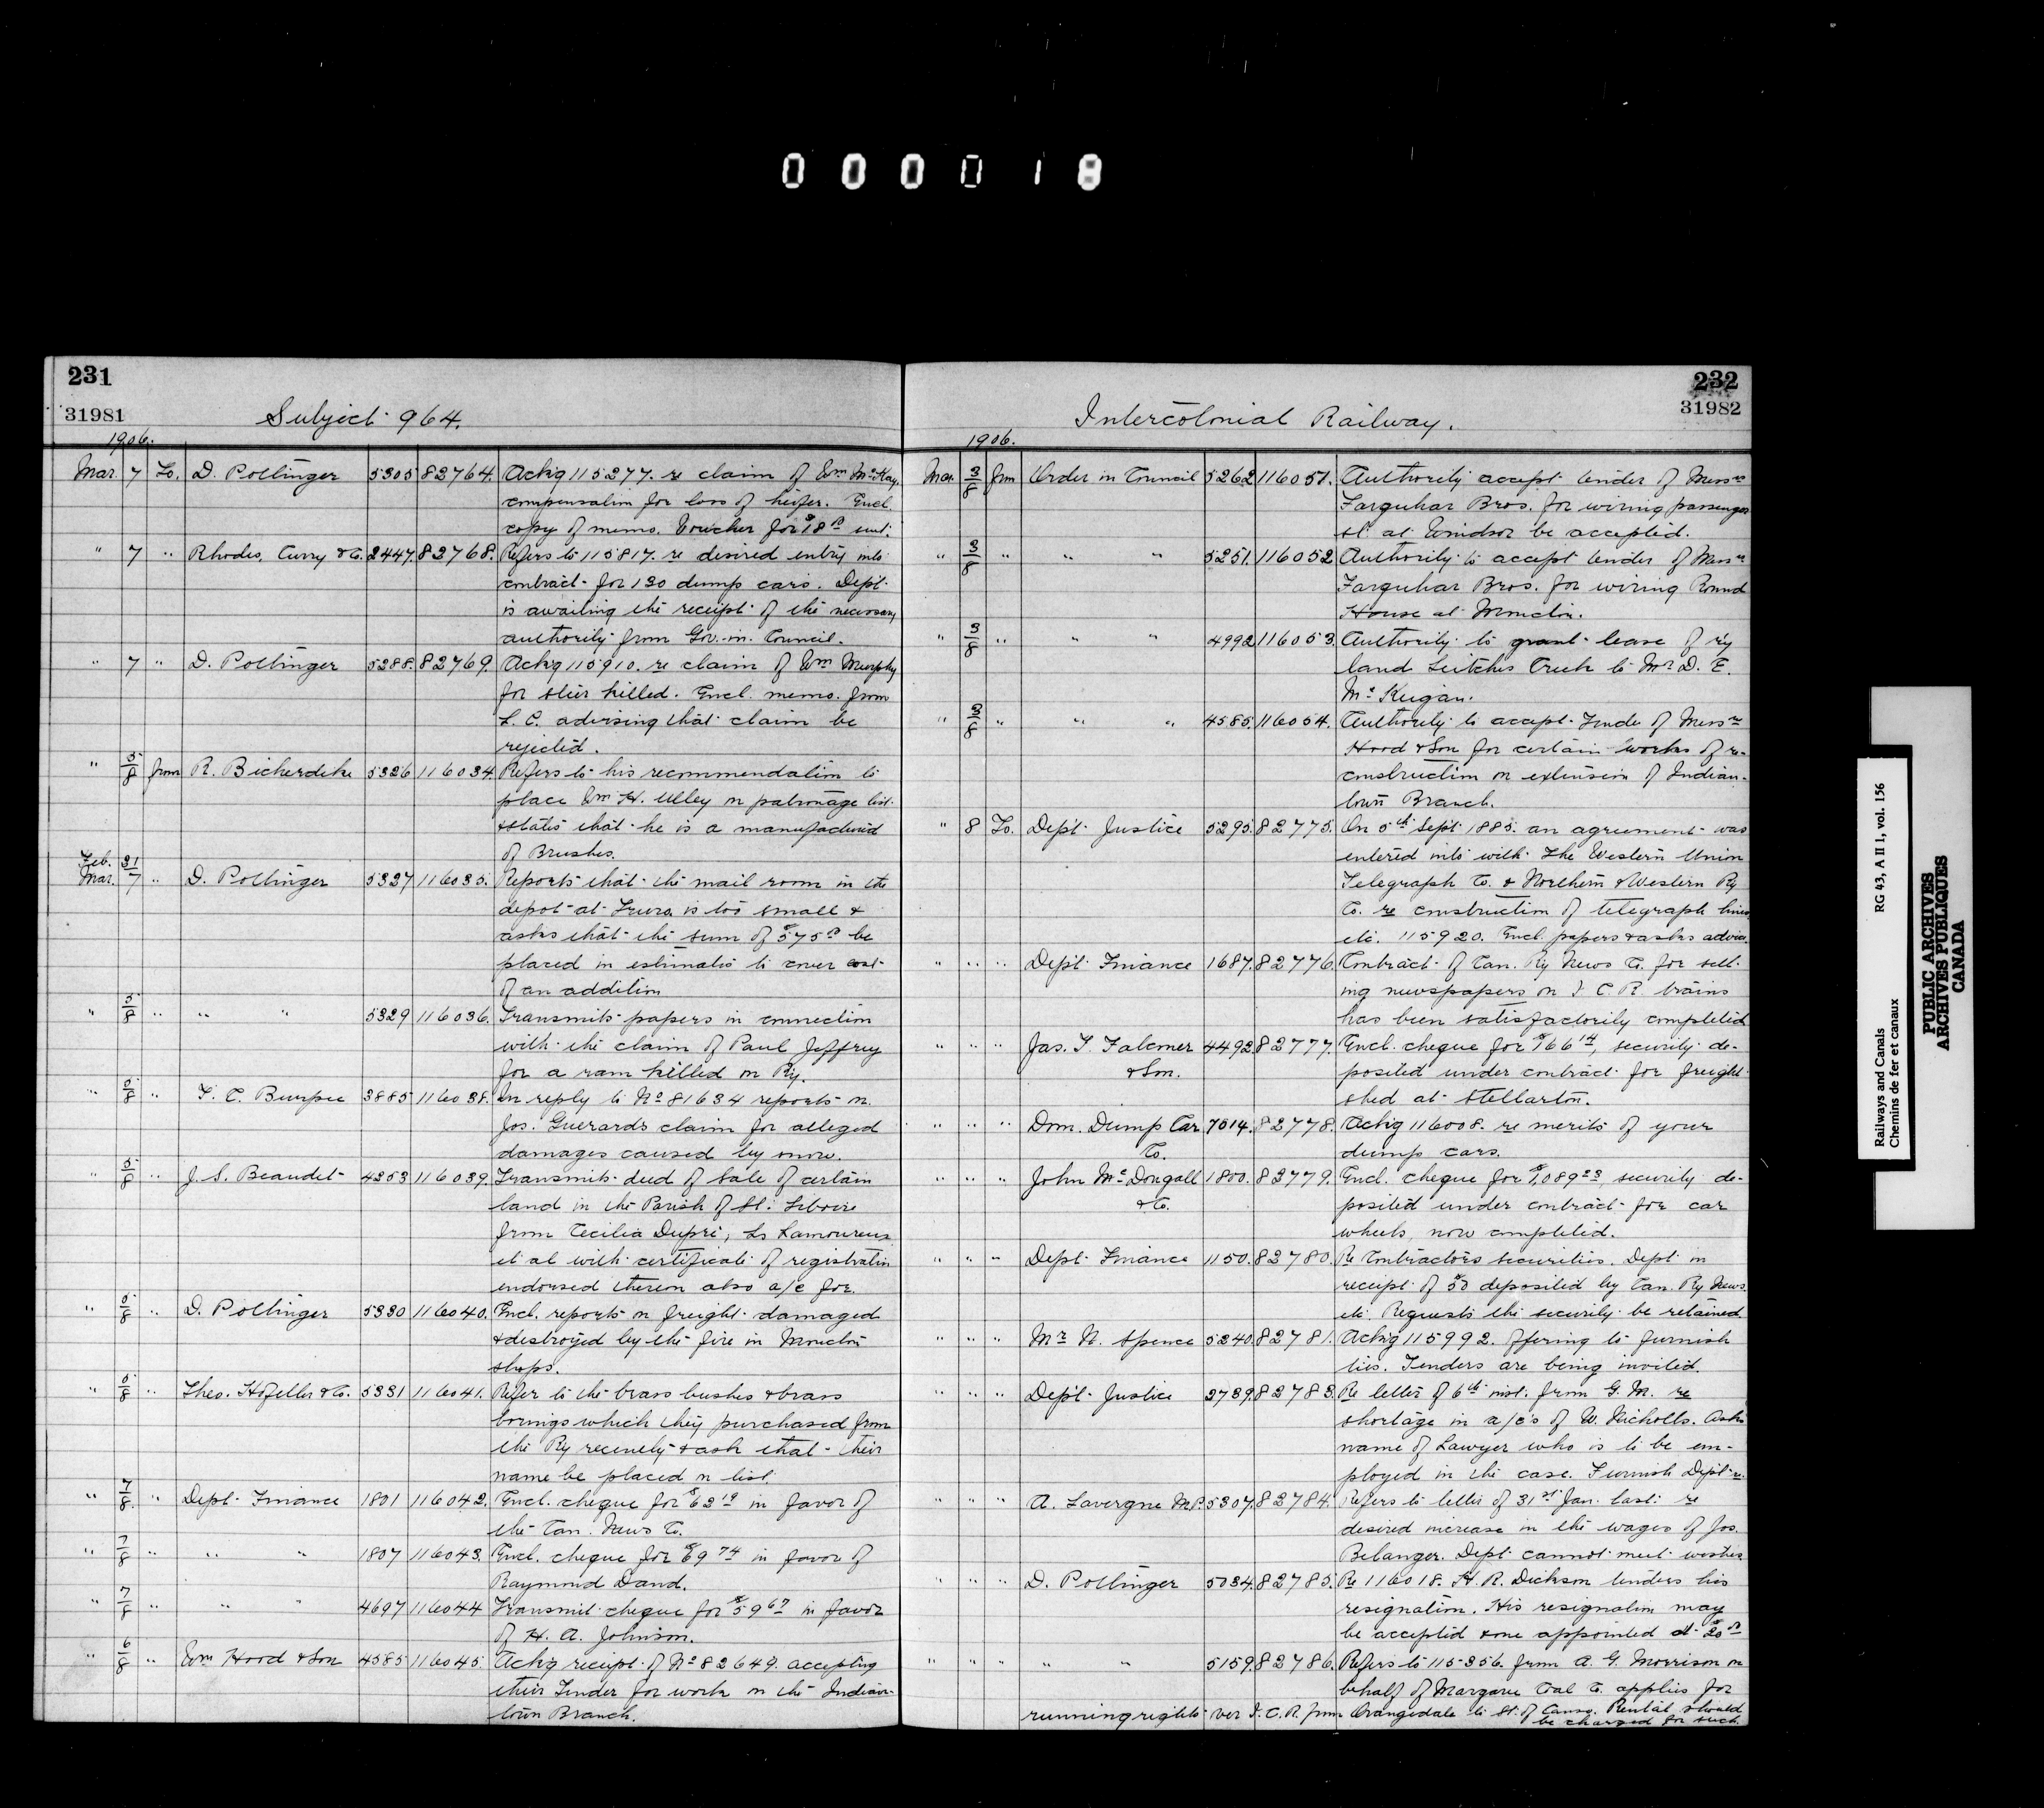 000018
231
31981
Subject 964.
1906.
Mar. 7 To. D. Pottinger 5305 82764. Ackg 115277. re claim of Wm McKay,
compensation for loss of heifer. Encl.
copy of memo. Voucher for $18.00 encl.
" 7 " Rhodes, Curry & Co. 2447. 82768. Refers to 115817. re desired entry into
contract for 130 dump cars. Dept.
is awaiting the receipt of the necessary
authority from Gov. in Council.
" 7 " D. Pottinger 5288. 82769. Ackg 115910. re claim of Wm Murphy
for steer killed. Encl. memo. from
L. C. advising that claim be
rejected.
" 5/8 from R. Bickerdike 5326 116034. Refers to his recommendation to
place Wm H. Ulley on patronage list
& states that he is a manufacturer
of Brushes.
Feb. 21
Mar. 7 " D. Pottinger 5327 116035. Reports that the mail room in the
depot at Truro is too small &
asks that the sum of $575.00 be
placed in estimates to cover cost
of an addition
" 5/8 " " " 5329 116036. Transmits papers in connection
with the claim of Paul Jeffrey
for a ram killed on Ry.
" 5/8 " T. C. Burpee 3885 116038. In reply to No 81634 reports on
Jos. Guerard's claim for alleged
damages caused by snow.
" 5/8 " J. S. Beaudet 4253 116039. Transmits deed of sale of certain
land in the Parish of St. Liboire
from Cecilia Dupré, Ls Lamoureux
et al with certificate of registration
endorsed thereon also a/c for.
" 5/8 " D. Pottinger 5330 116040. Encl. reports on freight damaged
& destroyed by the fire in Moncton
shops.
" 5/8 " Theo. Hofeller & Co. 5331 116041. Refer to the brass bushes & brass
borings which they purchased from
the Ry recently & ask that their
name be placed on list.
" 7/8. " Dept. Finance 1801 116042. Encl. cheque for $63.19 in favor of
the Can. News Co.
" 7/8 " " " 1807 116043. Encl. cheque for $69.74 in favor of
Raymond Dand.
" 7/8 " " " 4697 116044 Transmit cheque for $59.67 in favor
of H. A. Johnson.
" 6/8 " Wm Hood & Son 4585 116045. Ackg receipt of No 82649. accepting
their Tender for work on the Indian-
town Branch.
232
31982
Intercolonial Railway.
1906.
Mar. 3/8 frm Order in Council 5262 116051. Authority accept tender of Messrs
Farquhar Bros. for wiring passenger
st. at Windsor be accepted.
" 3/8 " " " 5251. 116052 Authority to accept tender of Messrs
Farquhar Bros. for wiring Round
House at Moncton.
" 3/8 " " " 4992 116053. Authority to grant lease of r'y
land Leitches Creek to Mr D. E.
McKeigan.
" 3/8 " " " 4585. 116054. Authority to accept Tender of Messrs
Hood & Son for certain works of re-
construction on extension of Indian-
town Branch.
" 8 To. Dept. Justice 5295. 82775. On 5th Sept. 1885. an agreement was
entered into with the Western Union
Telegraph Co. & Northern & Western Ry
Co. re construction of telegraph lines,
etc. 115920. Encl. papers & asks advice.
" " " Dept. Finance 1687. 82776. Contract of Can. Ry News Co. for sell-
ing newspapers on I. C. R. trains
has been satisfactorily completed
" " " Jas. T. Falconer 4492 82777. Encl. cheque for $166.14, security de-
& Son. posited under contract for freight
shed at Stellarton.
" " " Dom. Dump Car 7014. 82778. Ackg 116008. re merits of your
Co. dump cars.
" " " John McDougall 1800. 82779. Encl. cheque for $1,089.23, security de-
& Co. posited under contract for car
wheels, now completed.
" " " Dept. Finance 1150. 82780. Re Contractors securities. Dept. in
receipt of $50 deposited by Can. Ry News
etc. Requests the security be retained.
" " " Mr N. Spence 5240. 82781. Ackg 115992. offering to furnish
ties. Tenders are being invited.
" " " Dept. Justice 2739. 82783. Re letter of 6th inst. from G. M. re
shortage in a/cs of W. Nicholls. Asks
name of Lawyer who is to be em-
ployed in the case. Furnish Dept.
" " " A. Lavergne M.P. 5307. 82784. Refers to letter of 31st Jan. last. re
desired increase in the wages of Jos.
Belanger. Dept. cannot meet wishes
" " " D. Pottinger 5034. 82785. Re 116018. H. R. Dickson tenders his
resignation. His resignation may
be accepted & one appointed at $20.00
" " " " " 5159. 82786. Refers to 115356. from A. G. Morrison on
behalf of Margaree Coal Co. applies for
running rights over I. C. R. from Orangedale to St. of Canso. Rental should
be charged for such.
Railways and Canals RG 43, A II 1, vol. 156
Chemins de fer et canaux
PUBLIC ARCHIVES
ARCHIVES PUBLIQUES
CANADA